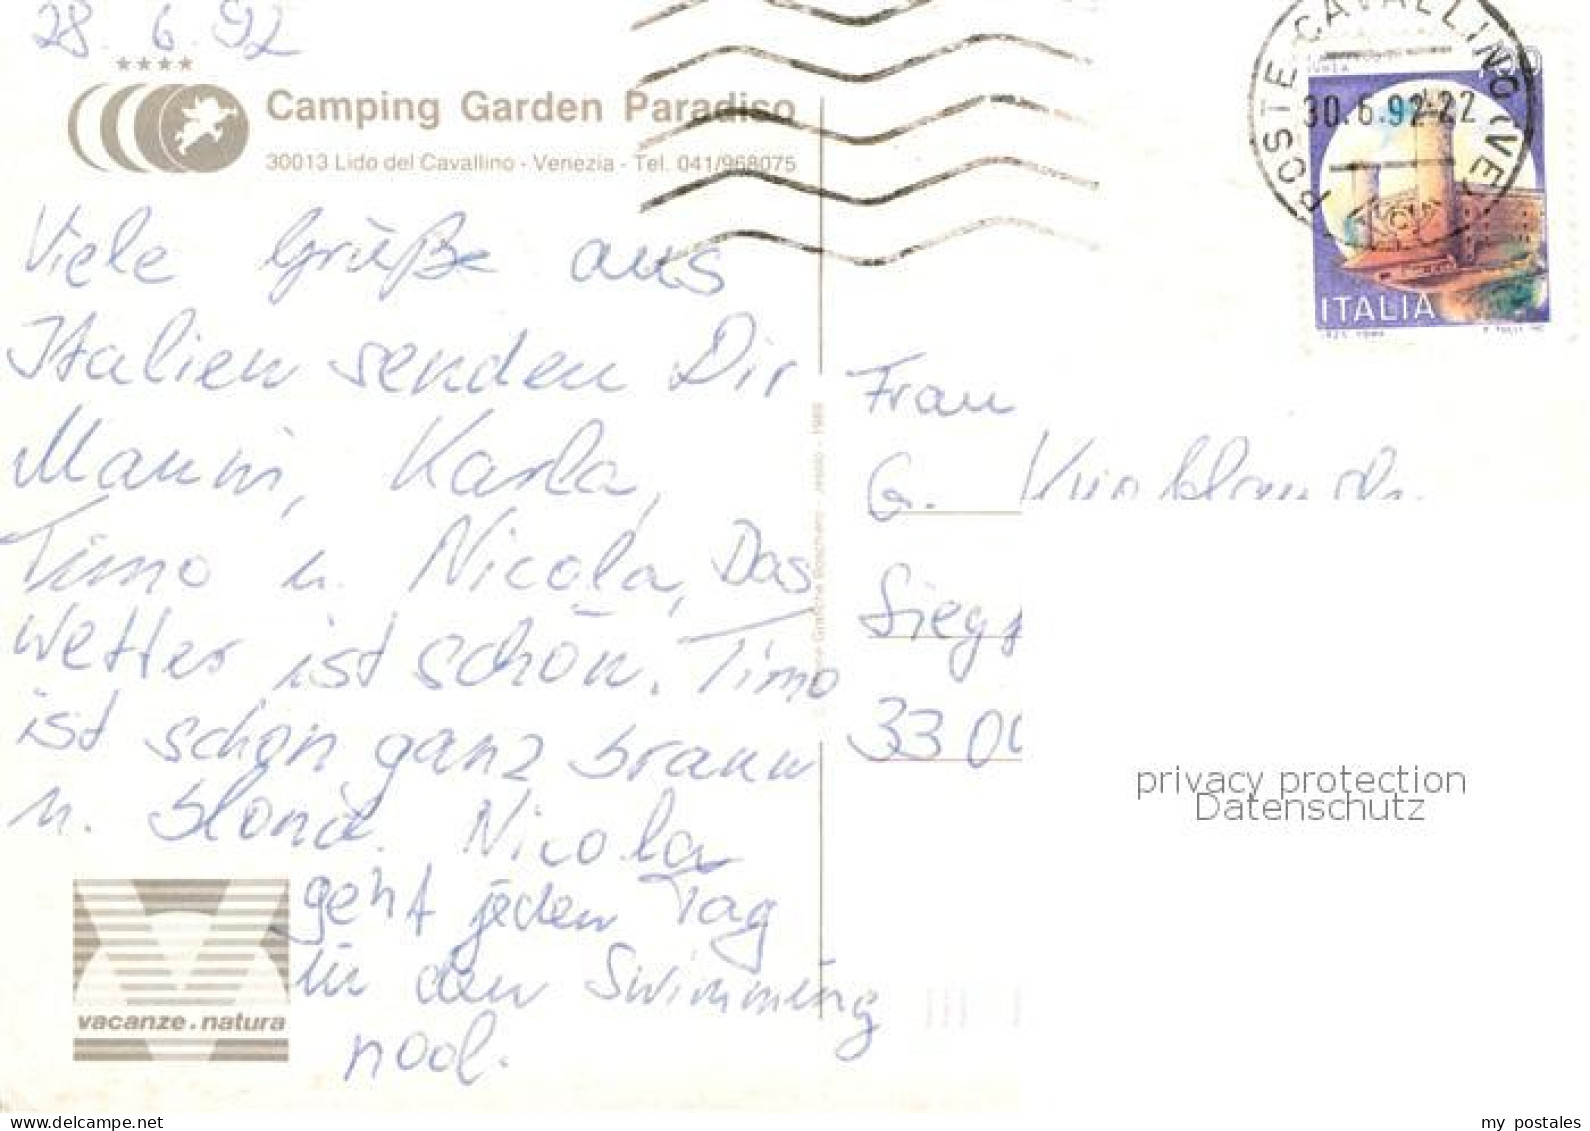 28.6.92
Camping Garden Paradiso
30013 Lido del Cavallino - Venezia - Tel. 041/968075
POSTE CAVALLINO (VE)
30.6.92-22
ITALIA
Viele Grüße aus
Italien senden Dir
Manni, Karla,
Timo u. Nicola, Das
Wetter ist schön. Timo
ist schon ganz braun
u. blond. Nicola
geht jeden Tag
in den Swimming
pool.
Frau
G.
Siegf
33 00
vacanze.natura
privacy protection
Datenschutz
my postales